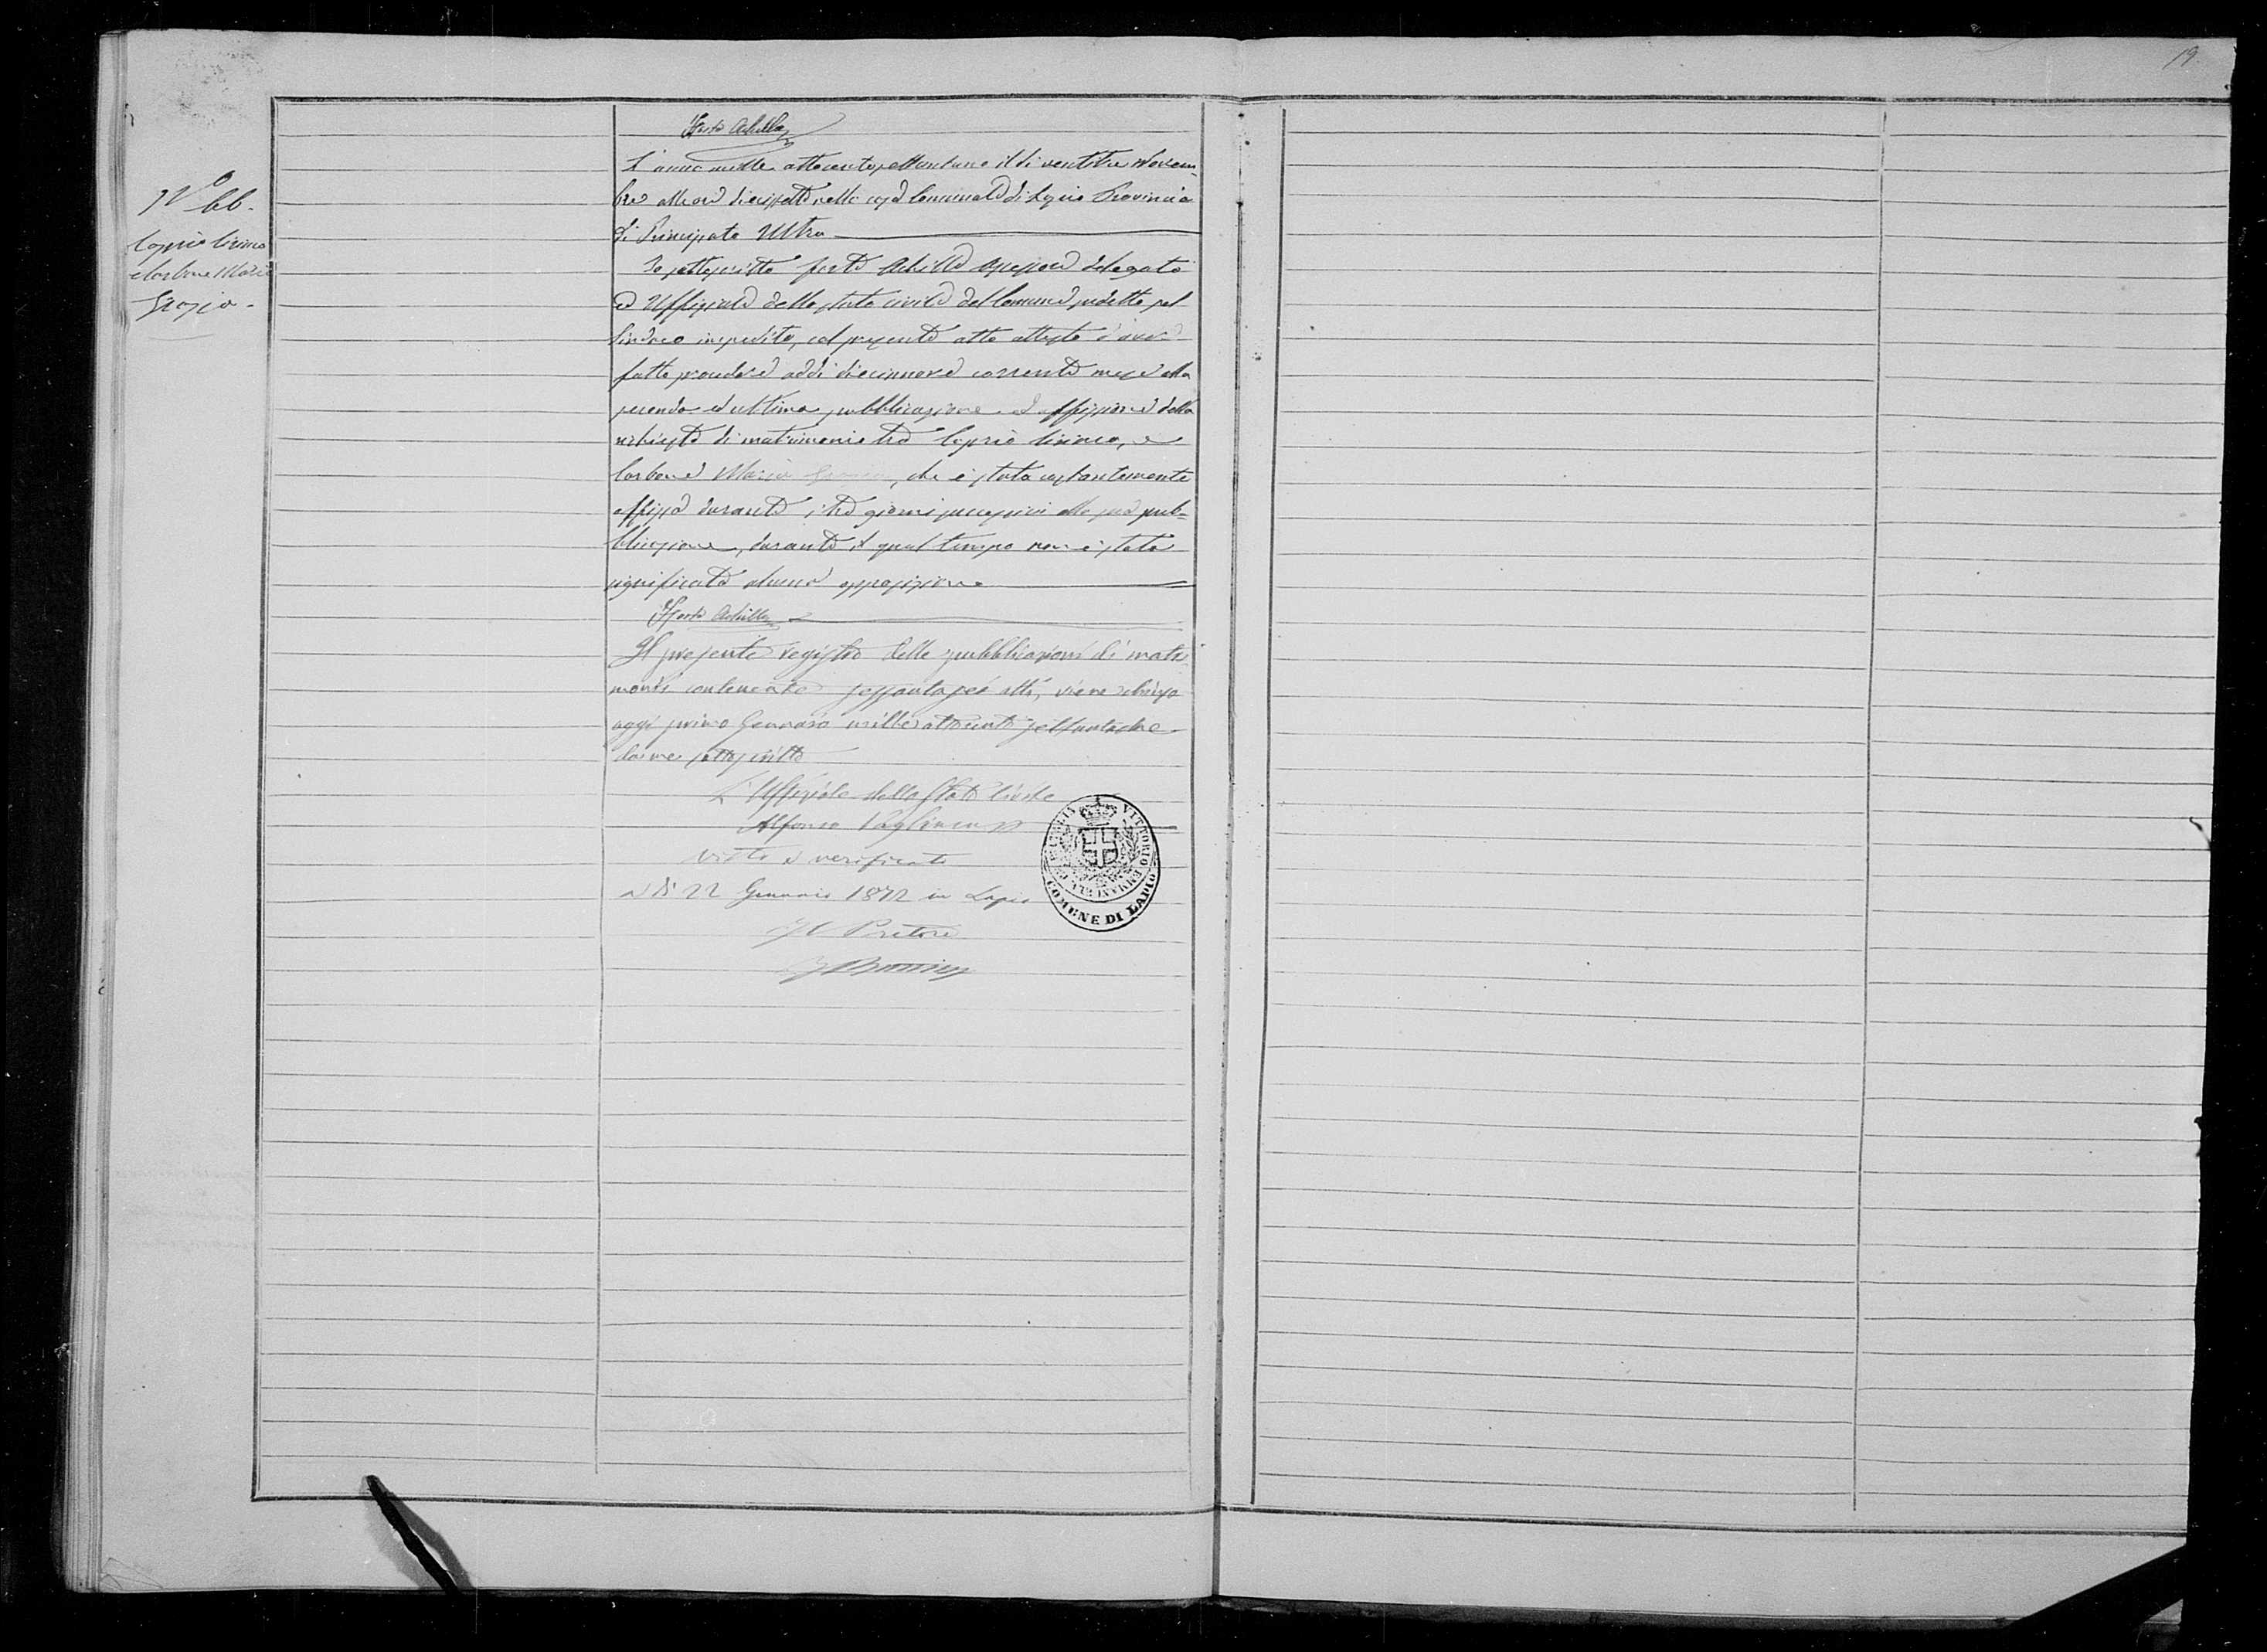 19
Forte Achille
L'anno mille ottocento settantuno il dì ventitre Novem-
bre alle ore diecissette nella casa Comunale di Lapio Provincia
di Principato Ultra
N° 66.
Caprio Ciriaco
e Carbone Maria
Grazia.
Io sottoscritto Forte Achille Assessore delegato
ed Uffiziale dello stato civile del Comune sudetto pel
Sindaco impedito, col presente atto attesto d'aver
fatto procedere addì diecinnove corrente mese alla
seconda ed ultima pubblicazione ed affissione della
richiesta di matrimonio tra Caprio Ciriaco, e
Carbone Maria Grazia, che è stata costantemente
affissa durante i tre giorni successivi alla sua pub-
blicazione, durante il qual tempo non è stata
significata alcuna opposizione
Forte Achille
Il presente registro delle pubblicazioni di matri-
monio contenente sessantasei atti, viene chiuso
oggi primo Gennaro mille ottocento settantadue
da me sottoscritto
L'Uffiziale dello Stato Civile
Alfonso
Visto e verificato
a dì 22 Gennaio 1872 in Lapio
Il Pretore
VITTORIO EMMANUELE
COMUNE DI LAPIO